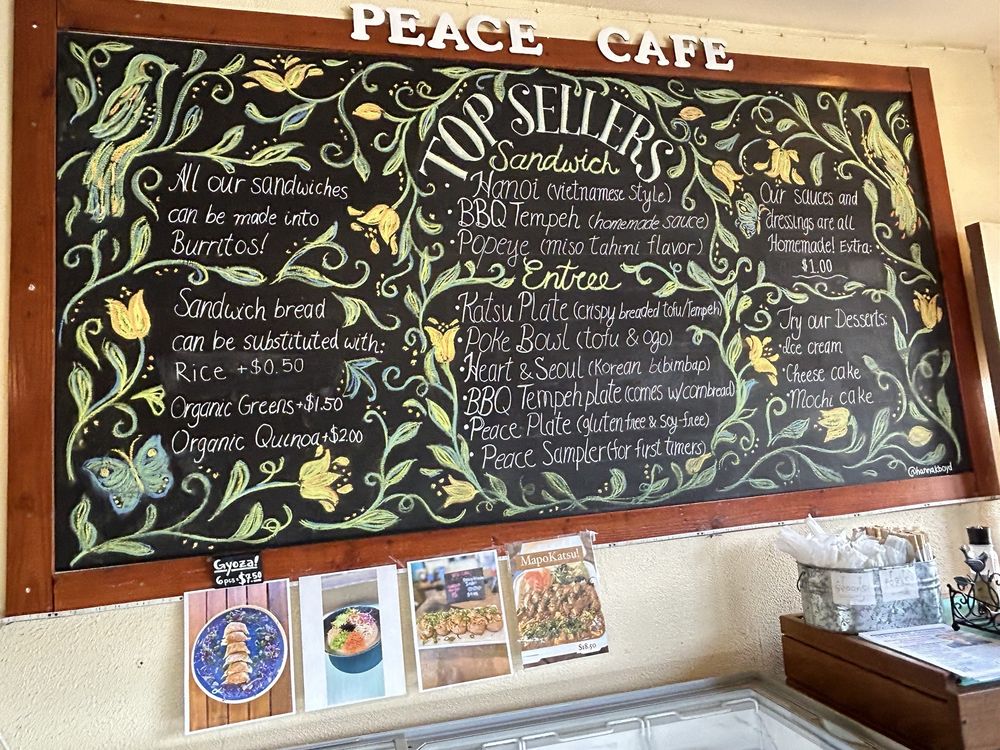 PEACE CAFE
TOP SELLERS
All our sandwiches
can be made into
Burritos!
Sandwich bread
can be substituted with:
Rice +$0.50
Organic Greens+$1.50
Organic Quinoa+$2.00
Sandwich
• Hanoi (vietnamese style)
• BBQ Tempeh (homemade sauce)
• Popeye (miso tahini flavor)
Entree
• Katsu Plate (crispy breaded tofu/tempeh)
• Poke Bowl (tofu & ogo)
• Heart & Seoul (Korean bibimbap)
• BBQ Tempeh plate (comes w/cornbread)
• Peace Plate (gluten free & soy-free)
• Peace Sampler (for first timers)
Our sauces and
dressings are all
Homemade! Extra:
$1.00
Try our Desserts:
• Ice cream
• Cheese cake
• Mochi cake
@hannakboyd
Gyoza!
6 pcs-$7.50
MapoKatsu!
$18.50